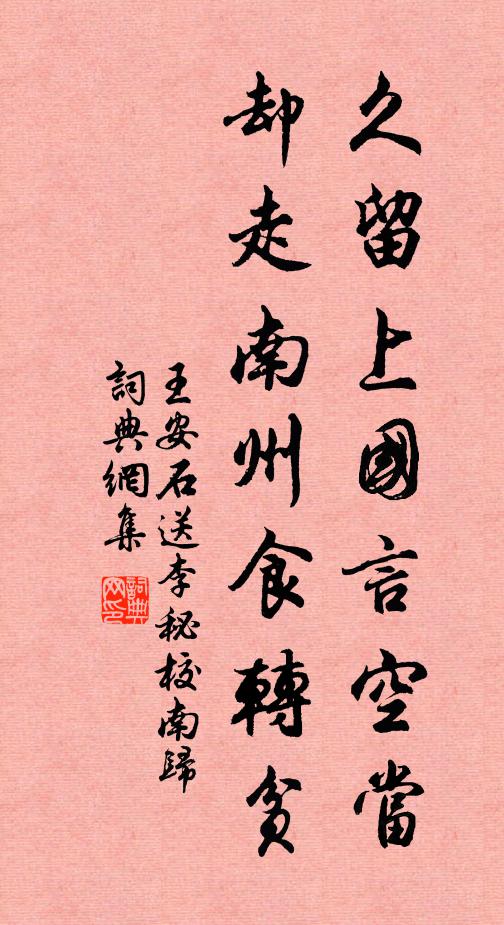 久留上國言空當
却走南州食轉貧
王安石送李秘校南歸
詞典網集
詞典
網印